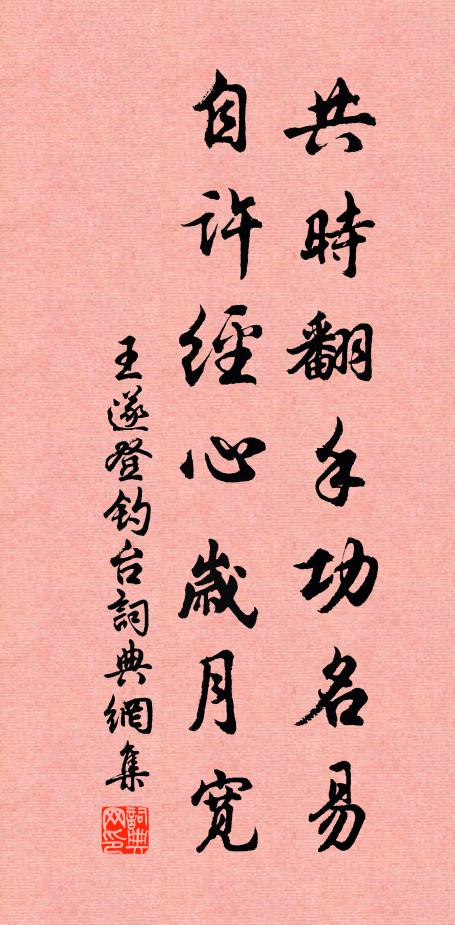 共時翻手功名易
自許經心歲月寬
王遂登钓台詞典網集
詞典网印